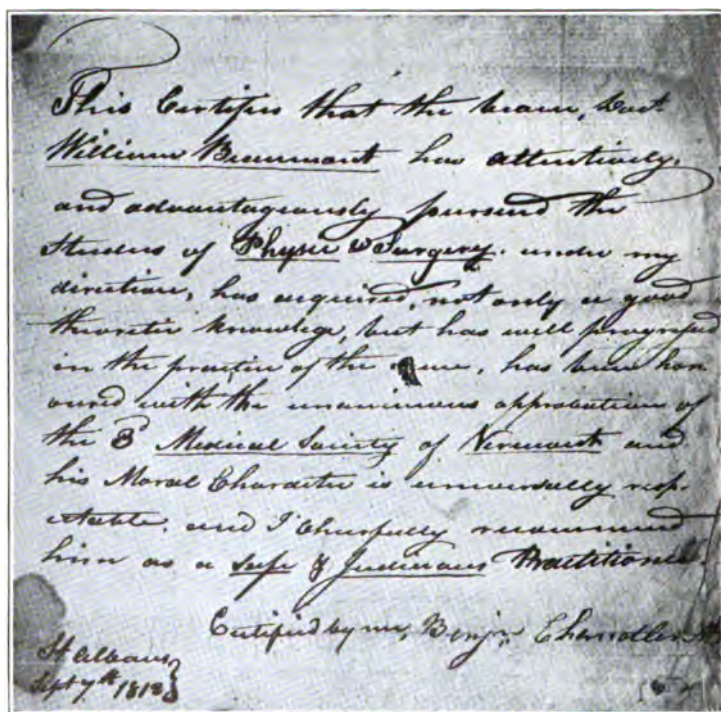 This Certifies that the bearer, Doct.
William Beaumont has attentively,
and advantageously pursued the
Studies of Physic & Surgery. under my
direction, has acquired, not only a good
theoretic knowlege, but has well progressed
in the practice of the, has been hon
oured with the unanimous approbation of
the 3 Medical Society of Vermont and
his Moral Character is universally resp-
ectable. and I chearfully recommend
him as a safe & Judicious Practitioner.
Certified by me, Benjn. Chandler
St Albans
Sept 7th 1812